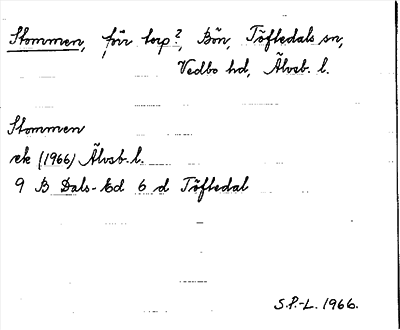 Stommen, för torp?, Bön, Töftedals sn,
Vedbo hd, Älvsb. l.
Stommen
ek (1966) Älvsb. l.
9 B Dals-Ed 6 d Töftedal
S.P.-L. 1966.